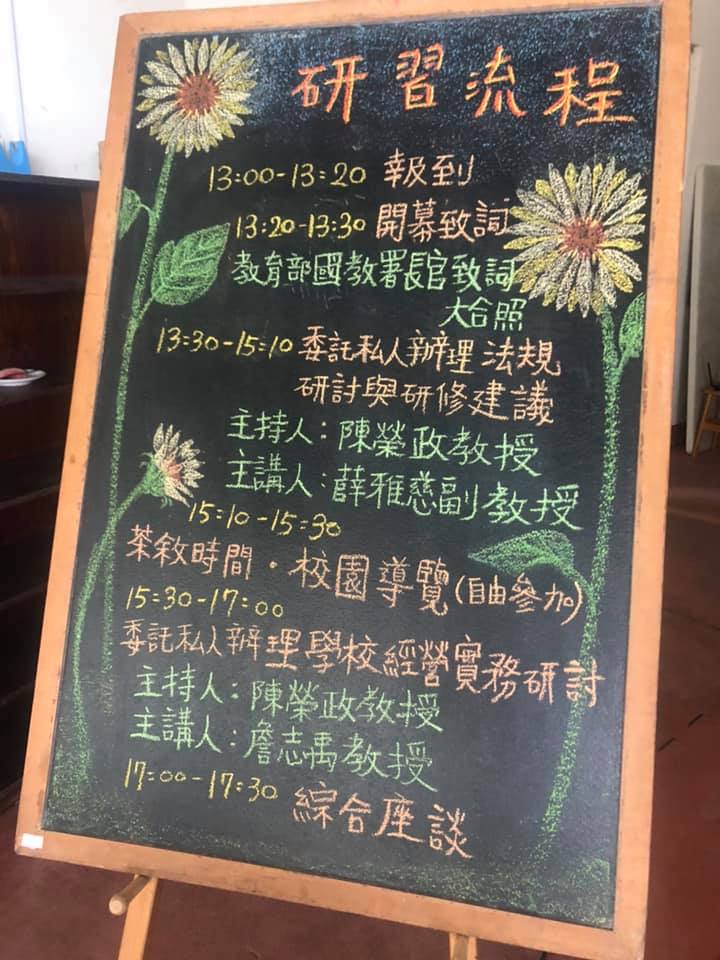 研習流程
13:00-13:20 報到
13:20-13:30 開幕致詞
教育部國教署長官致詞
大合照
13:30-15:10 委託私人辦理法規
研討與研修建議
主持人:陳榮政教授
主講人:薛雅慈副教授
15:10-15:30
茶敘時間・校園導覽(自由參加)
15:30-17:00
委託私人辦理學校經營實務研討
主持人:陳榮政教授
主講人:詹志禹教授
17:00-17:30 綜合座談